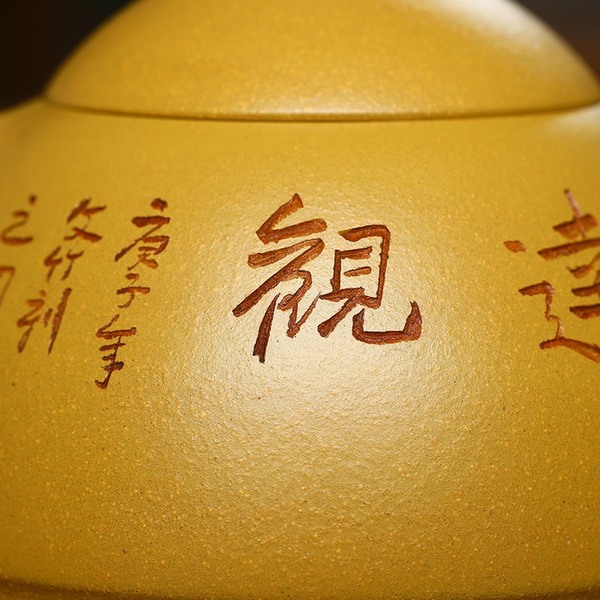 達觀
庚子年
文竹刻